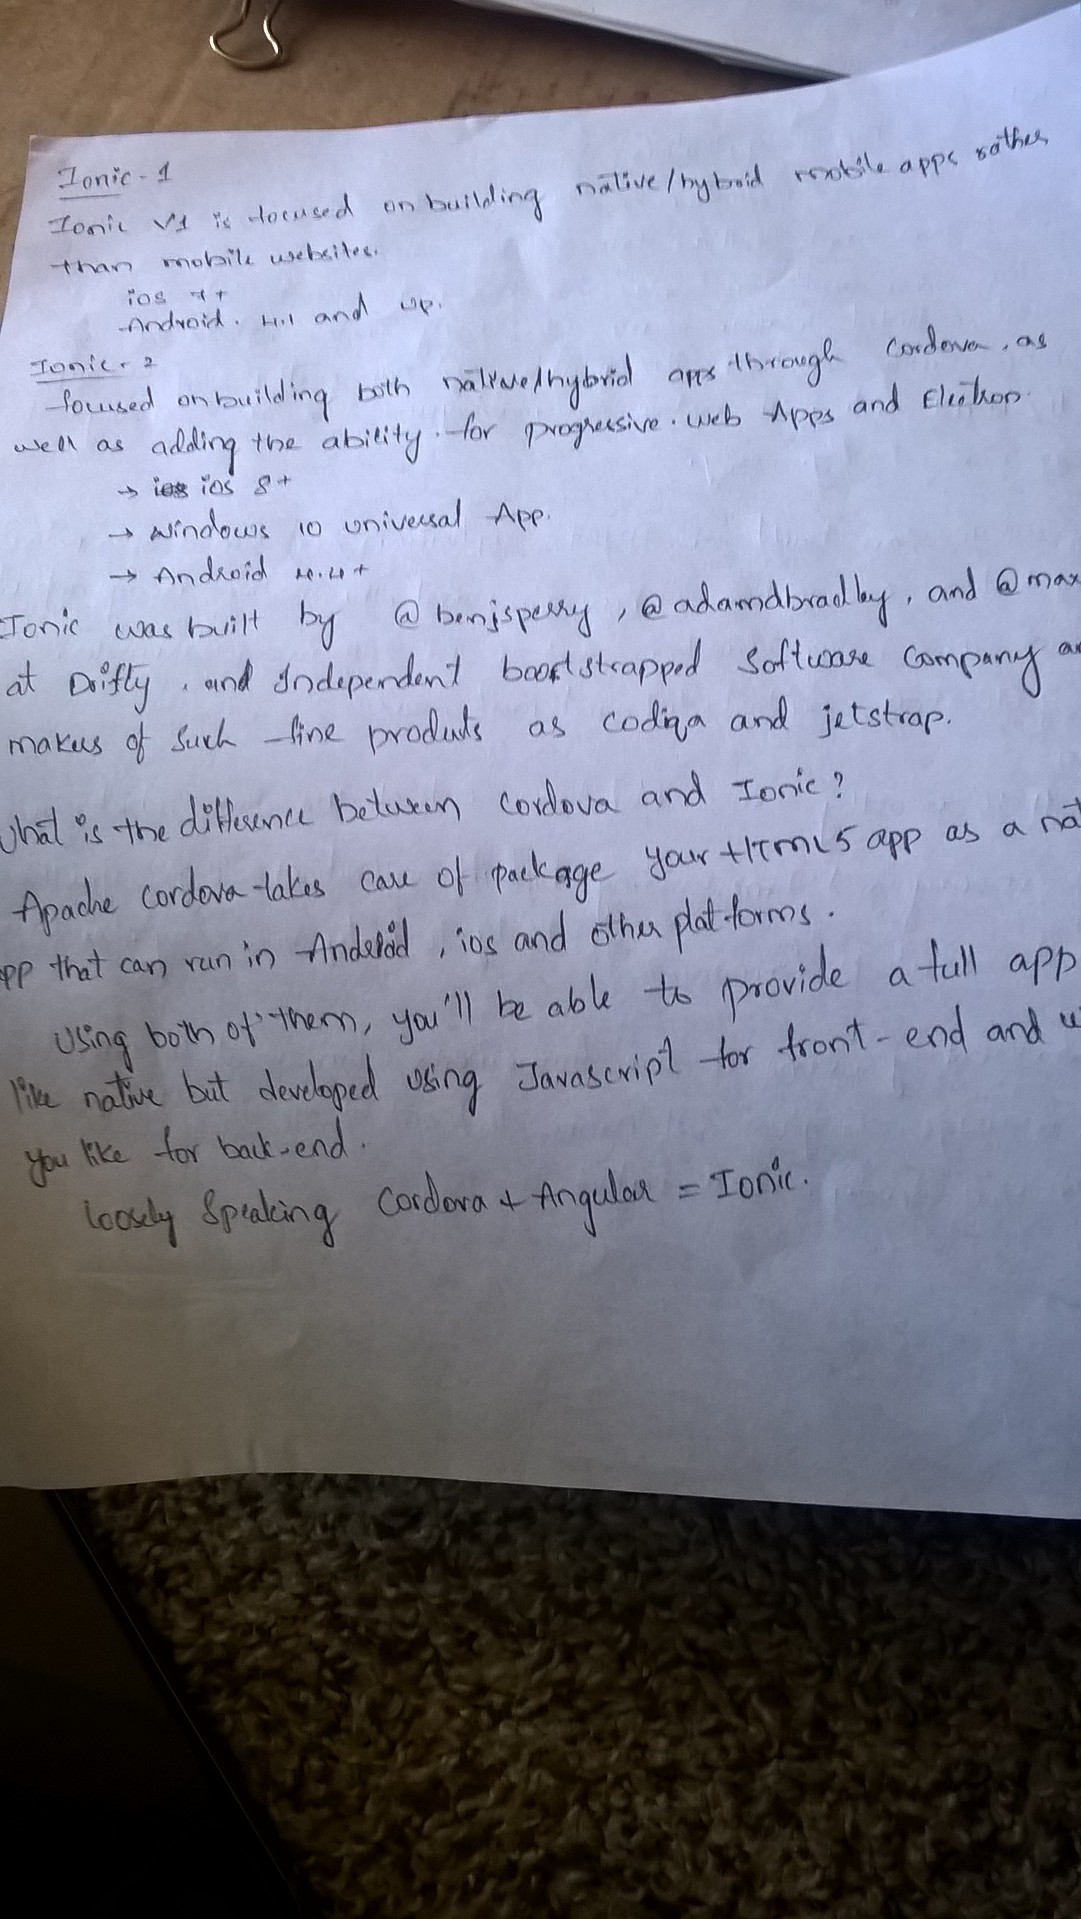 Ionic - 1
Ionic V1 is focused on building native/hybroid mobile apps rather
than mobile websites.
ios 7+
Android. 4.1 and up.
Ionic - 2
focused on building both native/hybrid apps through Cordova, as
well as adding the ability. for progressive. web Apps and Electron.
→ ios 8+
→ Windows 10 universal App.
→ Android 4.4+
Ionic was built by @benjsperry, @adamdbradley, and @max
at Drifty, and Independent bootstrapped Software Company
makers of Such fine products as codiqa and jetstrap.
What is the difference between Cordova and Ionic?
Apache Cordova takes care of package your HTML5 app as a nat
pp that can run in Android, ios and other platforms.
Using both of them, you'll be able to provide a full app
like native but developed using Javascript for front-end and
you like for back-end.
loosely Speaking Cordova + Angular = Ionic.